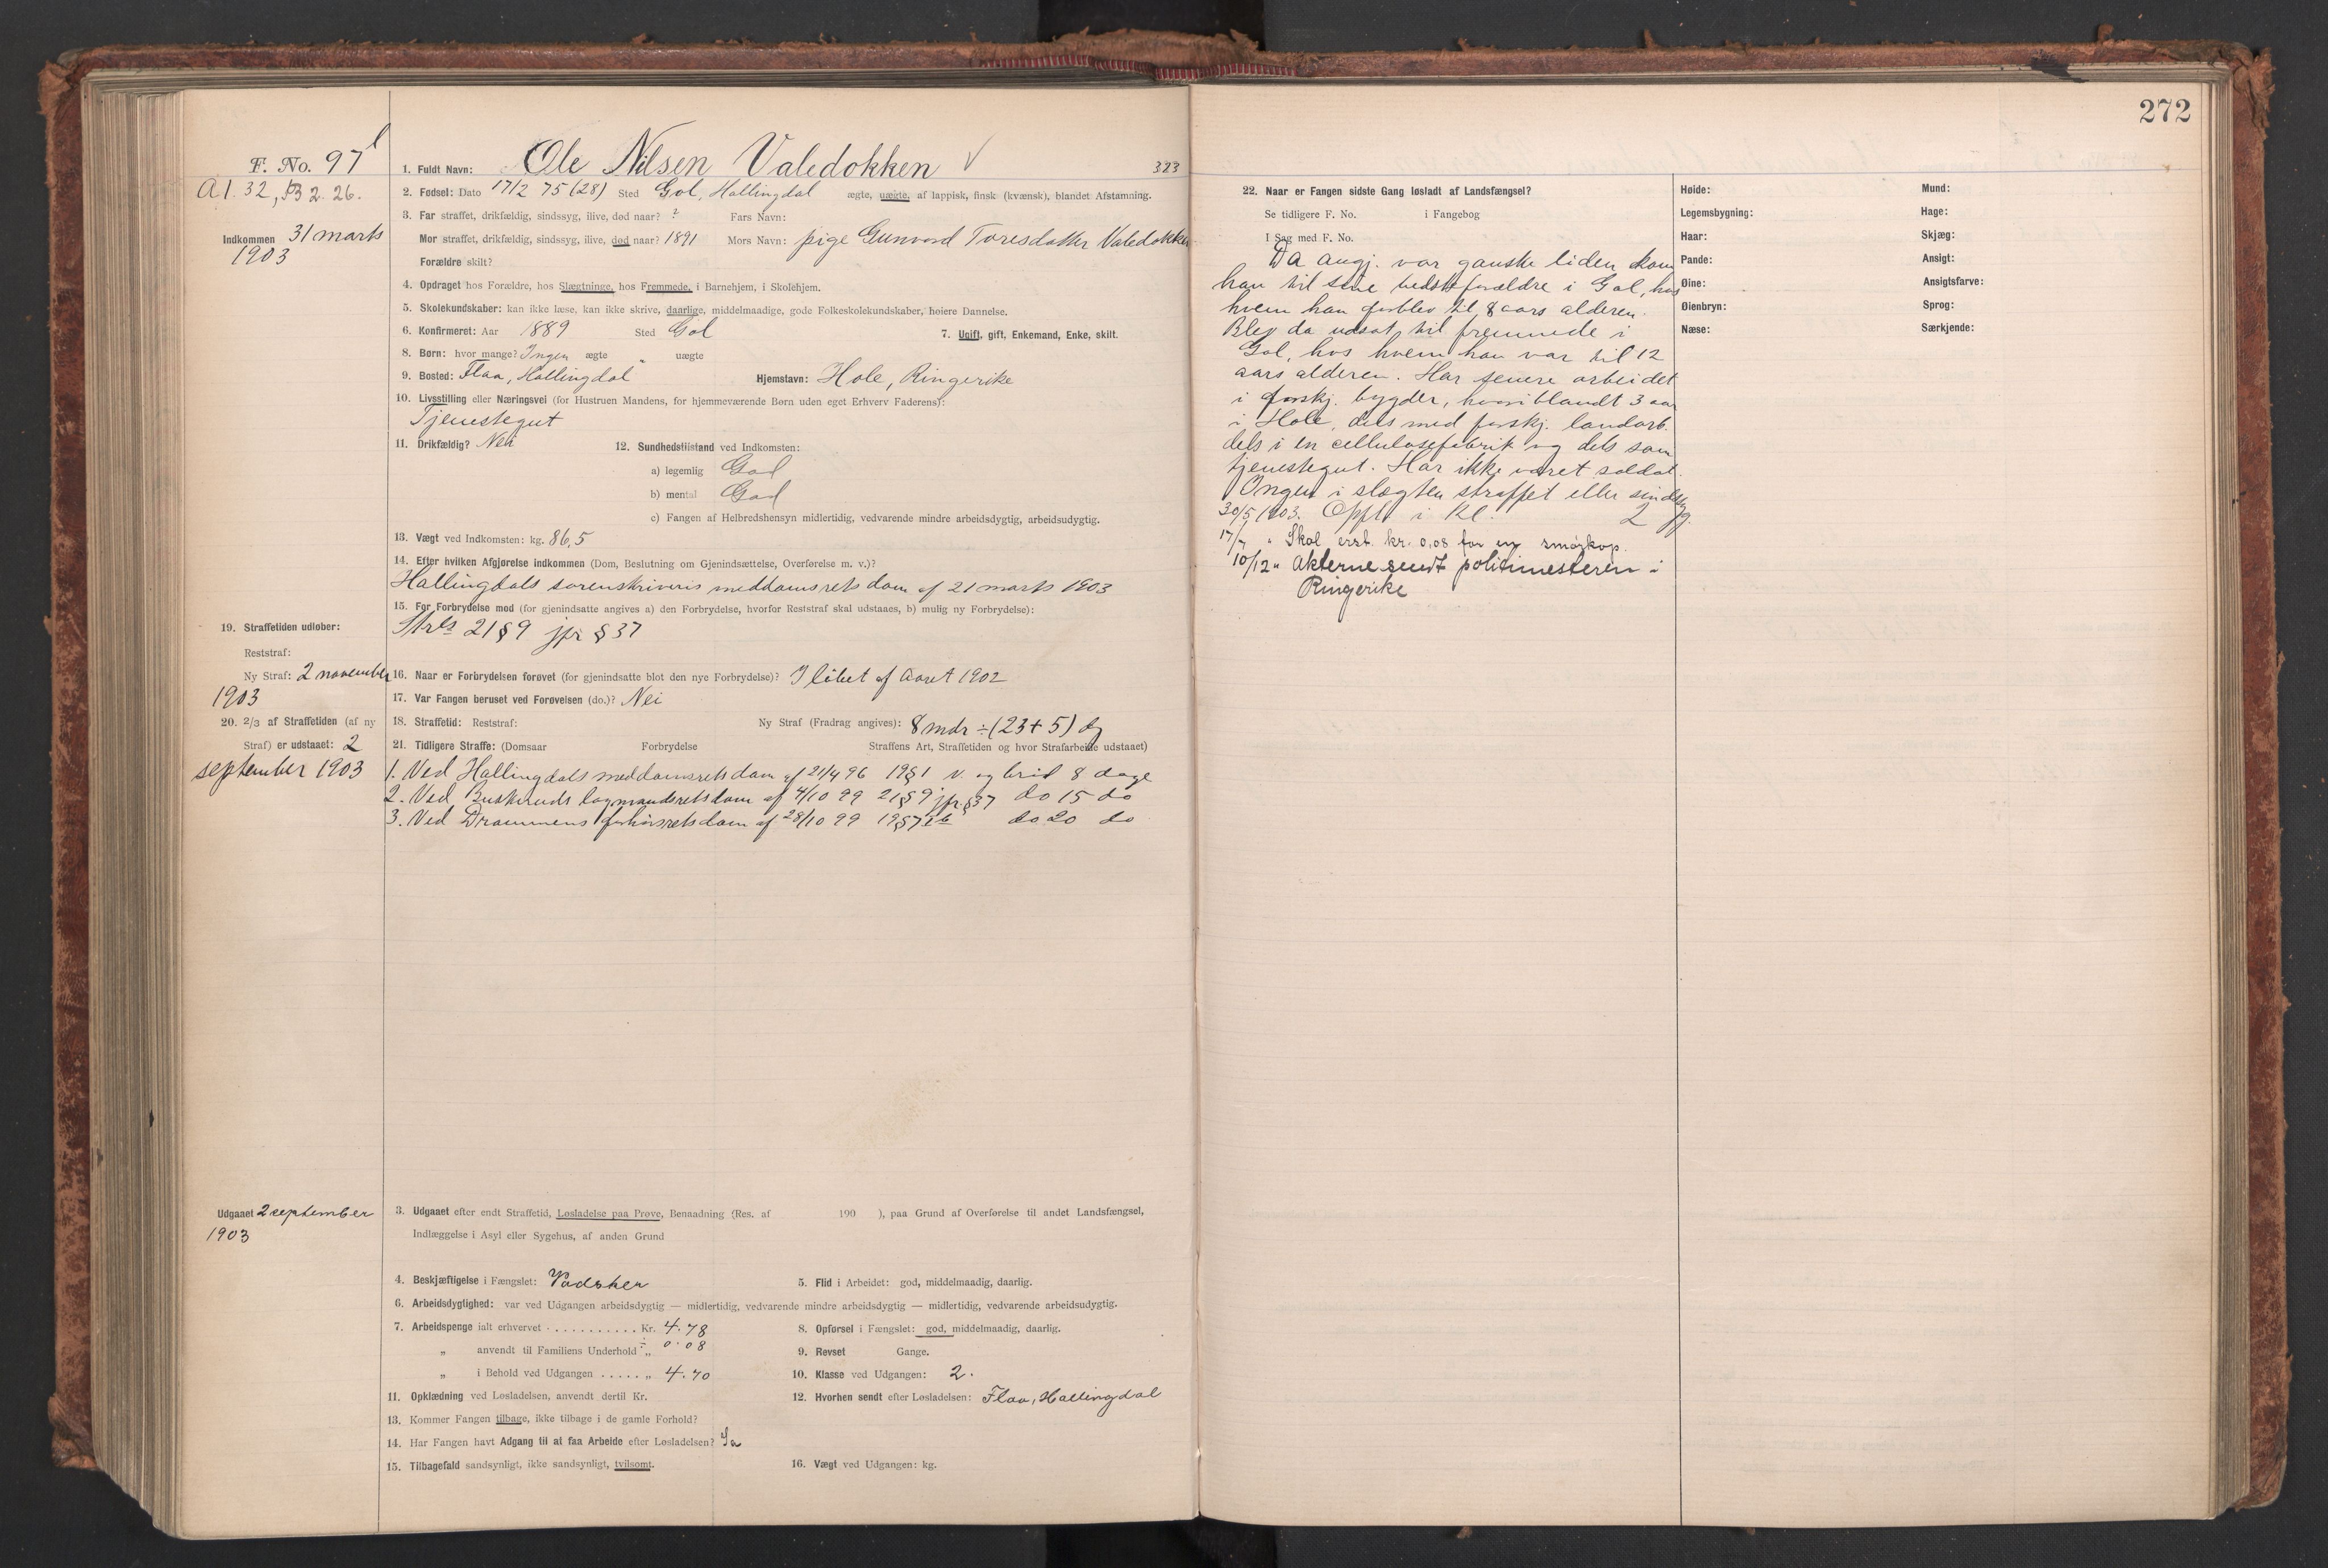 F. No. 97
A 1. 32, B 2. 26.
Indkommen 31 marts
1903
1. Fuldt Navn: Ole Nilsen Valedokken ✓ 323
2. Fødsel: Dato 17/2 75 (28) Sted Gol, Hallingdal ægte, uægte, af lappisk, finsk (kvænsk), blandet Afstamning.
3. Far straffet, drikfældig, sindssyg, ilive, død naar? ? Fars Navn:
Mor straffet, drikfældig, sindssyg, ilive, død naar? 1891 Mors Navn: pige Gunvord Toresdatter Valedokken
Forældre skilt?
4. Opdraget hos Forældre, hos Slægtninge, hos Fremmede, i Barnehjem, i Skolehjem.
5. Skolekundskaber: kan ikke læse, kan ikke skrive, daarlige, middelmaadige, gode Folkeskolekundskaber, høiere Dannelse.
6. Konfirmeret: Aar 1889 Sted Gol 7. Ugift, gift, Enkemand, Enke, skilt.
8. Børn: hvor mange? Ingen ægte " uægte
9. Bosted: Flaa, Hallingdal Hjemstavn: Hole, Ringerike
10. Livsstilling eller Næringsvei (for Hustruen Mandens, for hjemmeværende Børn uden eget Erhverv Faderens):
Tjenestegut
11. Drikfældig? Nei 12. Sundhedstilstand ved Indkomsten:
a) legemlig God
b) mental God
c) Fangen af Helbredshensyn midlertidig, vedvarende mindre arbeidsdygtig, arbeidsudygtig.
13. Vægt ved Indkomsten: kg. 86,5
14. Efter hvilken Afgjørelse indkommen (Dom, Beslutning om Gjenindsættelse, Overførelse m. v.)?
Hallingdals sorenskriveris meddomsrets dom af 21 marts 1903
15. For Forbrydelse mod (for gjenindsatte angives a) den Forbrydelse, hvorfor Reststraf skal udstaaes, b) mulig ny Forbrydelse):
Strls 21 § 9 jfr § 37
19. Straffetiden udløber:
Reststraf:
Ny Straf: 2 november
1903
16. Naar er Forbrydelsen forøvet (for gjenindsatte blot den nye Forbrydelse)? I løbet af Aaret 1902
17. Var Fangen beruset ved Forøvelsen (do.)? Nei
20. 2/3 af Straffetiden (af ny
Straf) er udstaaet: 2
september 1903
18. Straffetid: Reststraf: Ny Straf (Fradrag angives): 8 mdr ÷ (23 + 5) dg
21. Tidligere Straffe: (Domsaar Forbrydelse Straffens Art, Straffetiden og hvor Strafarbeide udstaaet)
1. Ved Hallingdals meddomsrets dom af 21/4 96 19 § 1 v. og brød 8 dage
2. Ved Buskeruds lagmandsrets dom af 4/10 99 21 § 9 jfr. § 37 do 15 do
3. Ved Drammens forhørsrets dom af 28/10 99 19 § 7 do 20 do
Udgaaet 2 september
1903
3. Udgaaet efter endt Straffetid, Løsladelse paa Prøve, Benaadning (Res. af 190 ), paa Grund af Overførelse til andet Landsfængsel,
Indlæggelse i Asyl eller Sygehus, af anden Grund
4. Beskjæftigelse i Fængslet: Vadsker 5. Flid i Arbeidet: god, middelmaadig, daarlig.
6. Arbeidsdygtighed: var ved Udgangen arbeidsdygtig — midlertidig, vedvarende mindre arbeidsdygtig — midlertidig, vedvarende arbeidsudygtig.
7. Arbeidspenge ialt erhvervet ........... Kr. 4.78 8. Opførsel i Fængslet: god, middelmaadig, daarlig.
„ anvendt til Familiens Underhold ÷ „ 0.08 9. Revset Gange.
„ i Behold ved Udgangen ..... „ 4.70 10. Klasse ved Udgangen: 2.
11. Opklædning ved Løsladelsen, anvendt dertil Kr. 12. Hvorhen sendt efter Løsladelsen: Flaa, Hallingdal
13. Kommer Fangen tilbage, ikke tilbage i de gamle Forhold?
14. Har Fangen havt Adgang til at faa Arbeide efter Løsladelsen? Ja
15. Tilbagefald sandsynligt, ikke sandsynligt, tvilsomt. 16. Vægt ved Udgangen: kg.
272
22. Naar er Fangen sidste Gang løsladt af Landsfængsel?
Se tidligere F. No. i Fangebog
I Sag med F. No.
Da angj. var ganske liden kom
han til sine bedsteforældre i Gol, hos
hvem han forblev til 8 aars alderen.
Blev da udsat til fremmede i
Gol, hos hvem han var til 12
aars alderen. Har senere arbeidet
i forskj. bygder, hvoriblandt 3 aar
i Hole, dels med forskj. landarb.
dels i en cellulosefabrik og dels som
tjenestegut. Har ikke været soldat.
Ingen i slægten straffet eller sindssyg.
30/5 1903. Opfl. i Kl. 2
17/7 " Skal erst. kr. 0,08 for en smørkop.
10/12 " Akterne sendt politimesteren i
Ringerike
Høide: Mund:
Legemsbygning: Hage:
Haar: Skjæg:
Pande: Ansigt:
Øine: Ansigtsfarve:
Øienbryn: Sprog:
Næse: Særkjende: